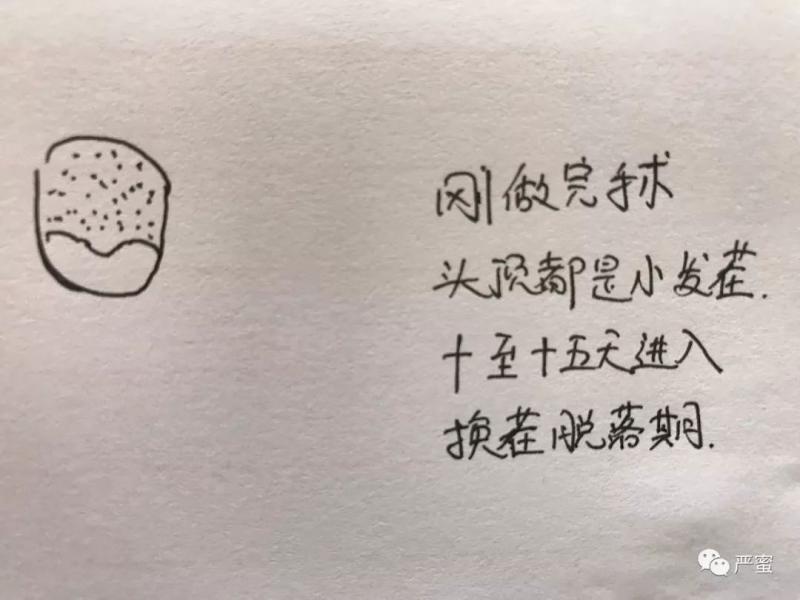 刚做完手术
头顶都是小发茬.
十至十五天进入
换茬脱落期.
严蜜